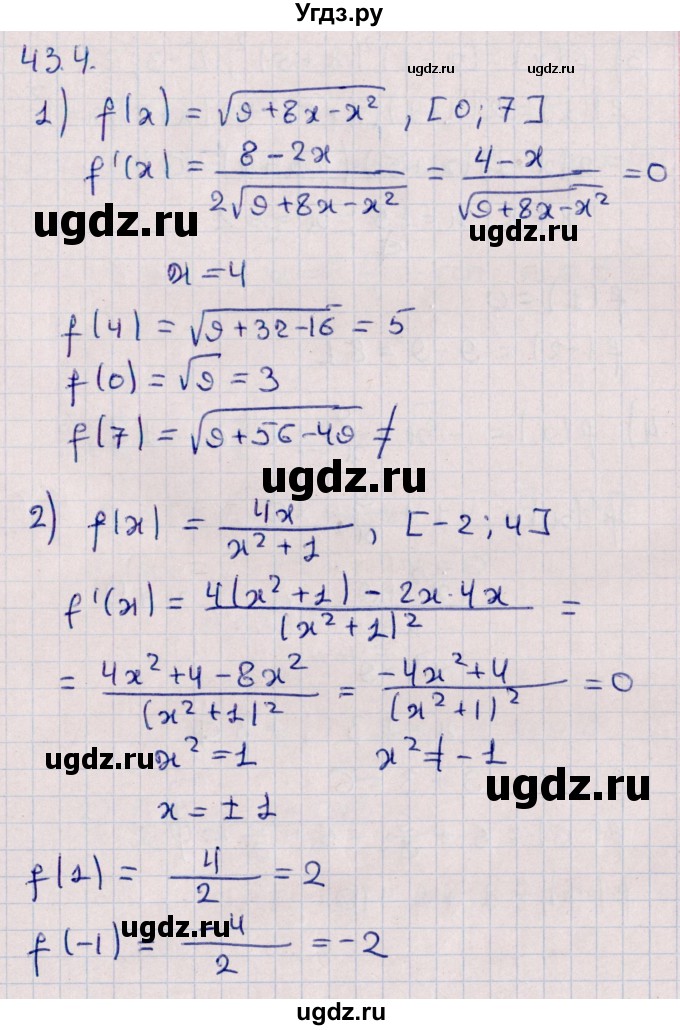 Угдз.ру
43.4.
ugdz.ru ugdz.ru
1) f(x) = √(9+8x-x²), [0; 7]
f'(x) = (8-2x)/(2√(9+8x-x²)) = (4-x)/√(9+8x-x²) = 0
ugdz.ru ugdz.ru
x = 4
f(4) = √(9+32-16) = 5
f(0) = √9 = 3
f(7) = √(9+56-49) ≠
ugdz.ru
2) f(x) = 4x/(x²+1), [-2; 4]
f'(x) = (4(x²+1) - 2x·4x)/(x²+1)² =
= (4x²+4-8x²)/(x²+1)² = (-4x²+4)/(x²+1)² = 0
ugdz.ru
x² = 1 x² ≠ -1
ugdz.ru
x = ±1
f(1) = 4/2 = 2
ugdz.ru
f(-1) = -4/2 = -2
ugdz.ru
ugdz.ru